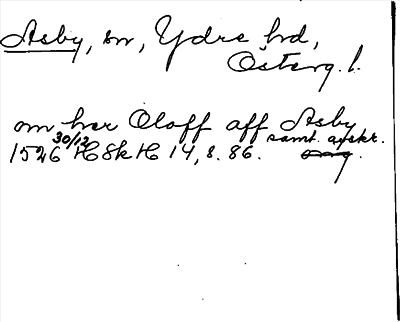 Asby, sn, Ydre hd,
Österg. l.
om her Oloff aff Asby
samt. avskr.
1526 30/12 HSkH 14, s. 86. orig.